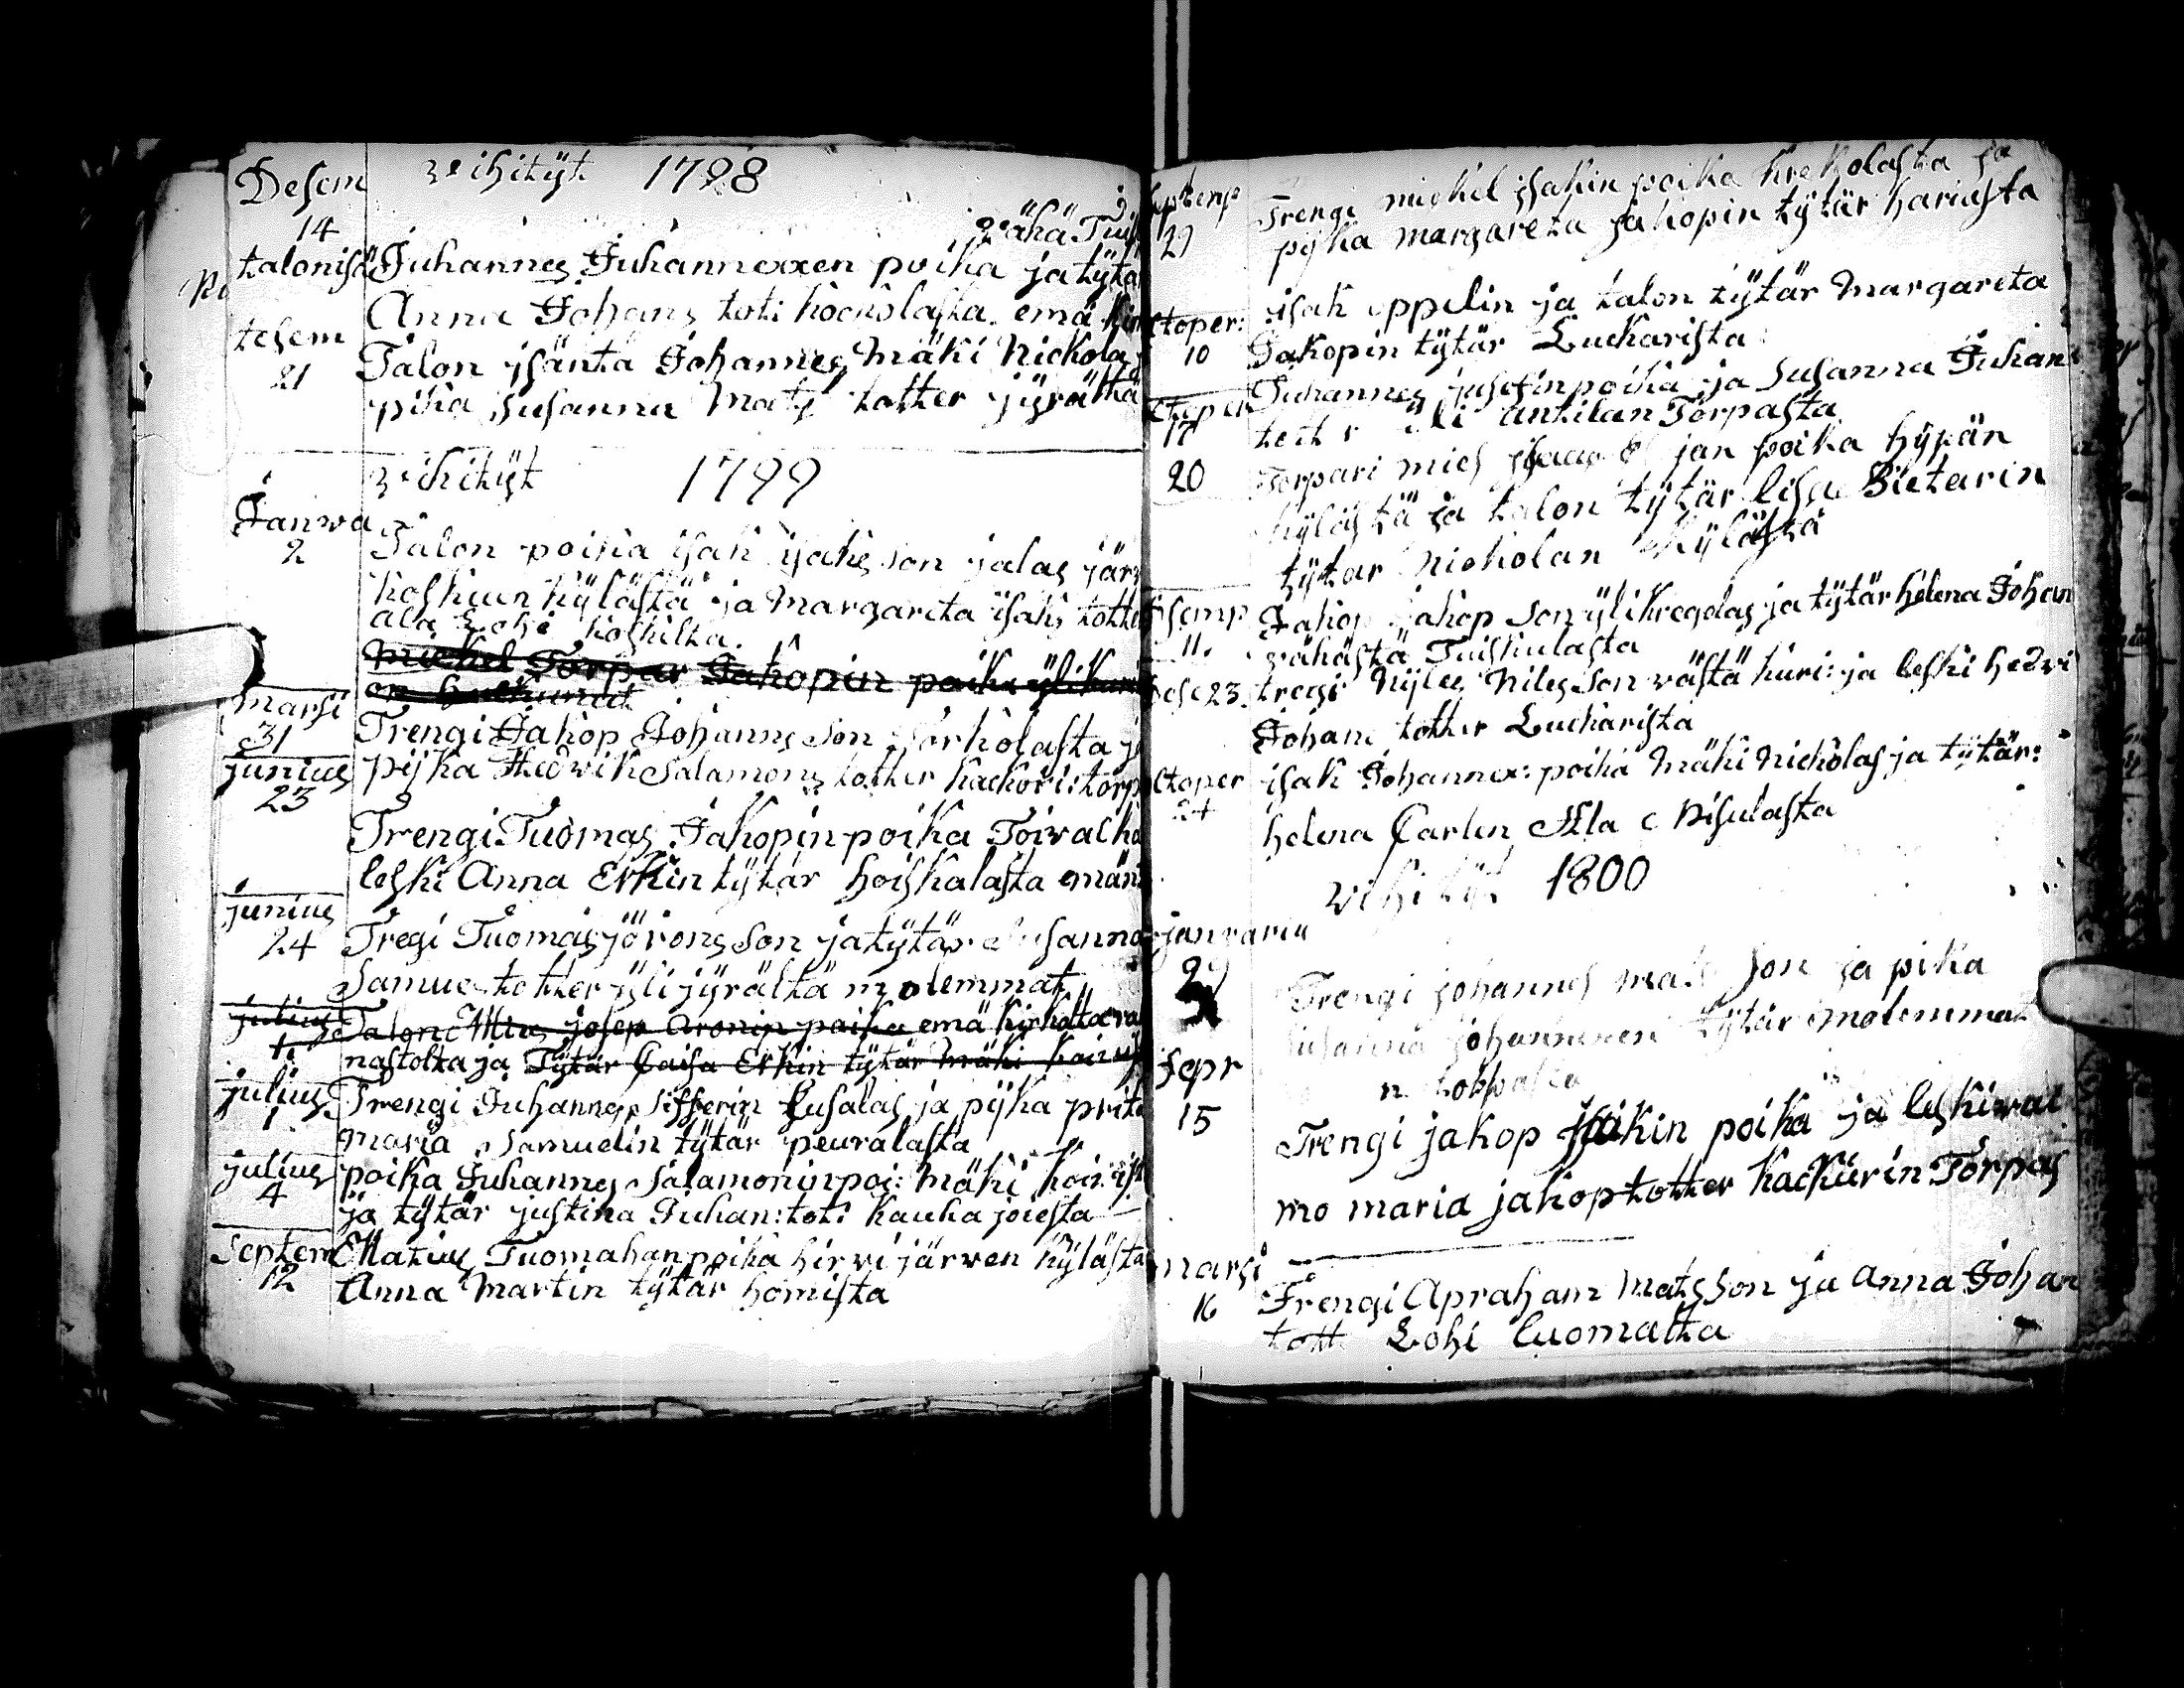 Desem wihityt 1798
14 wähä Tuis
talonisä Juhannes Juhannexen poika ja tytä
Anna Johans tot: kockolasta emä kir
tesem Talon jsäntä Johannes Mäki Nickola
21 pika susanna Mats totter jyrältä
wihityt 1799
Janwa
2 Talon poika isak isaks son jalas järw
koskuen kylästä ja Margareta isaks totte
ala Lohi koskilta.
Mickel Torpar Jakopin poika ylikures
marsi
31 Trengi Jakop Johanns son järkolasta ja
junius pijka Hedwik Salamons totter kackori: torp
23
Trengi Tuomas Jakopin poika Toiwalho
leski Anna Erkin tytär hoiskalasta emän
junius
24 Tregi Tuomas jörons son ja tytär Susanna
Samue totter yli jyrältä molemmat
julius Taloni Mies josep Aronin poika emä kirkolta
1 nastolta ja Tytär Caisa Erkin tytär Mäki
julius Trengi Juhannes Sifferin Lusalas ja pijka prita
1 maria Samuelin tytär peuralasta
julius poika Juhannes Salamonin poi: Mäki
4 ja tytär justina Juhan: tot: kauha joesta
Septem Matius Tuomahan poika hirwi järwen kylästa
12 Anna Martin tytär homista
septemp Trengi mickel isakin poika krekolasta ja
29 pijka margareta jakopin tytär hariusta
ctoper: isak oppelin ja talon tytär Margareta
10 Jakopin tytär Luckarista
ctoper Juhannes jusefin poika ja Susanna Juhan
17 yli antilan Torpasta
20 Torpari mies jsaac jan poika hypän
kylästä ja talon tytär lisa Bietarin
tytar Nickolan kylästä
esemp Jakop Jakop son yli kregolas ja tytär helena Johan
11. wähästä Tuiskulasta
ese 23. tregi Nyles Niles son wästä kuri: ja leski hedwi
Johans totter Luckarista
ctoper isak Johannex: poika Mäki Nickolas ja tytär:
24 helena Carlen Ala Nisulasta
wihityt 1800
janvariu
29 Trengi johannes mats son ja pika
susanna johannexen tytär molemmat
Fepr
15 Trengi jakop isakin poika ja leskiwai
mo maria jakop totter kackurin Torpas
marsi
16 Trengi Apraham Mats son ja Anna Johan
tott Lohi luomalta